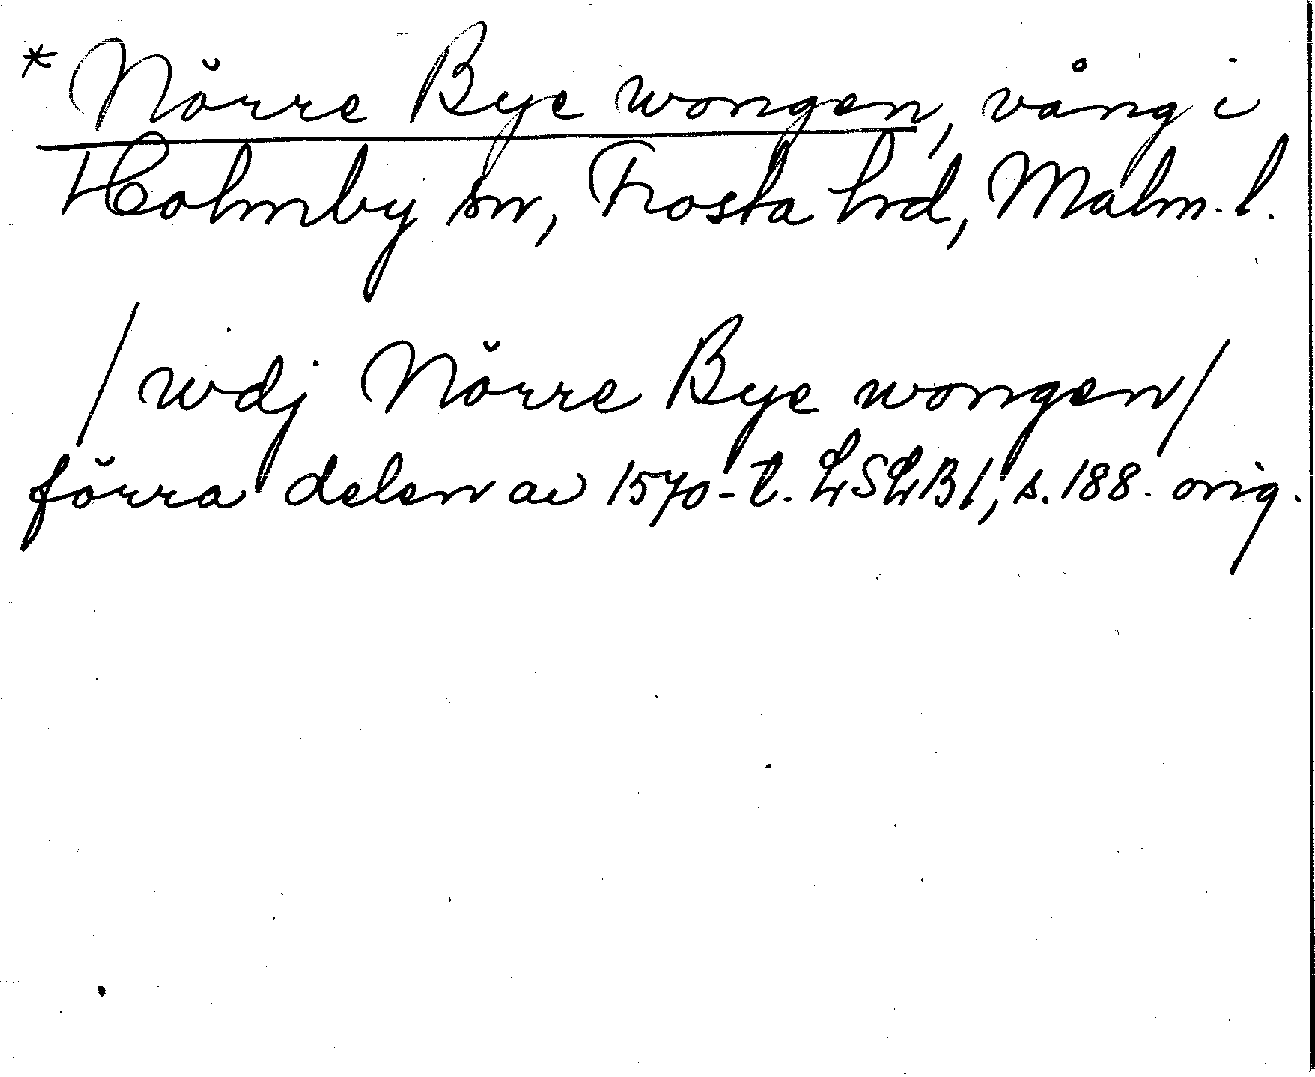 * Nörre Bye wongen, vång i
Holmby sn, Frosta hrd, Malm. l.
/wdj Nörre Bye wongen/
förra delen av 1570-t. LSLB1, s. 188. orig.